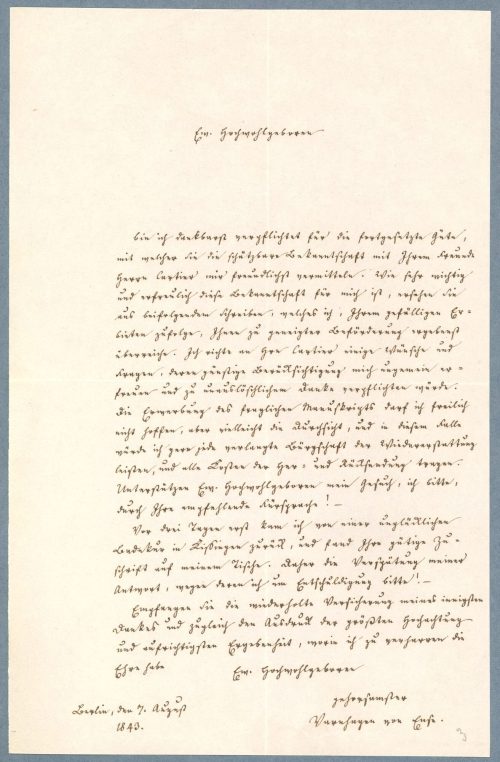 Ew. Hochwohlgeboren
bin ich dankbarst verpflichtet für die fortgesetzte Güte,
mit welcher Sie die schätzbare Bekanntschaft mit Ihrem Freunde
Herrn Cartier mir freundlichst vermitteln. Wie sehr wichtig
und erfreulich diese Bekanntschaft für mich ist, ersehen Sie
aus beifolgendem Schreiben, welches ich, Ihrem gefälligen Er-
bieten zufolge, Ihnen zu geneigter Beförderung ergebenst
überreiche. Ich richte an Hrn Cartier einige Wünsche und
Fragen, deren günstige Berücksichtigung mich ungemein er-
freuen und zu unauslöschlichem Danke verpflichten würde.
Die Erwerbung des fraglichen Manuskripts darf ich freilich
nicht hoffen, aber vielleicht die Durchsicht, und in diesem Falle
würde ich gern jede verlangte Bürgschaft der Wiedererstattung
leisten, und alle Kosten der Her- und Rücksendung tragen.
Unterstützen Ew. Hochwohlgeboren mein Gesuch, ich bitte,
durch Ihre empfehlende Fürsprache! –
Vor drei Tagen erst kam ich von einer unglücklichen
Badekur in Kissingen zurück, und fand Ihre gütige Zu-
schrift auf meinem Tische. Daher die Verspätung meiner
Antwort, wegen deren ich um Entschuldigung bitte! –
Empfangen Sie die wiederholte Versicherung meines innigsten
Dankes und zugleich den Ausdruck der größten Hochachtung
und aufrichtigsten Ergebenheit, worin ich zu verharren die
Ehre habe
Ew. Hochwohlgeboren
gehorsamster
Varnhagen von Ense.
Berlin, den 7. August
1843.